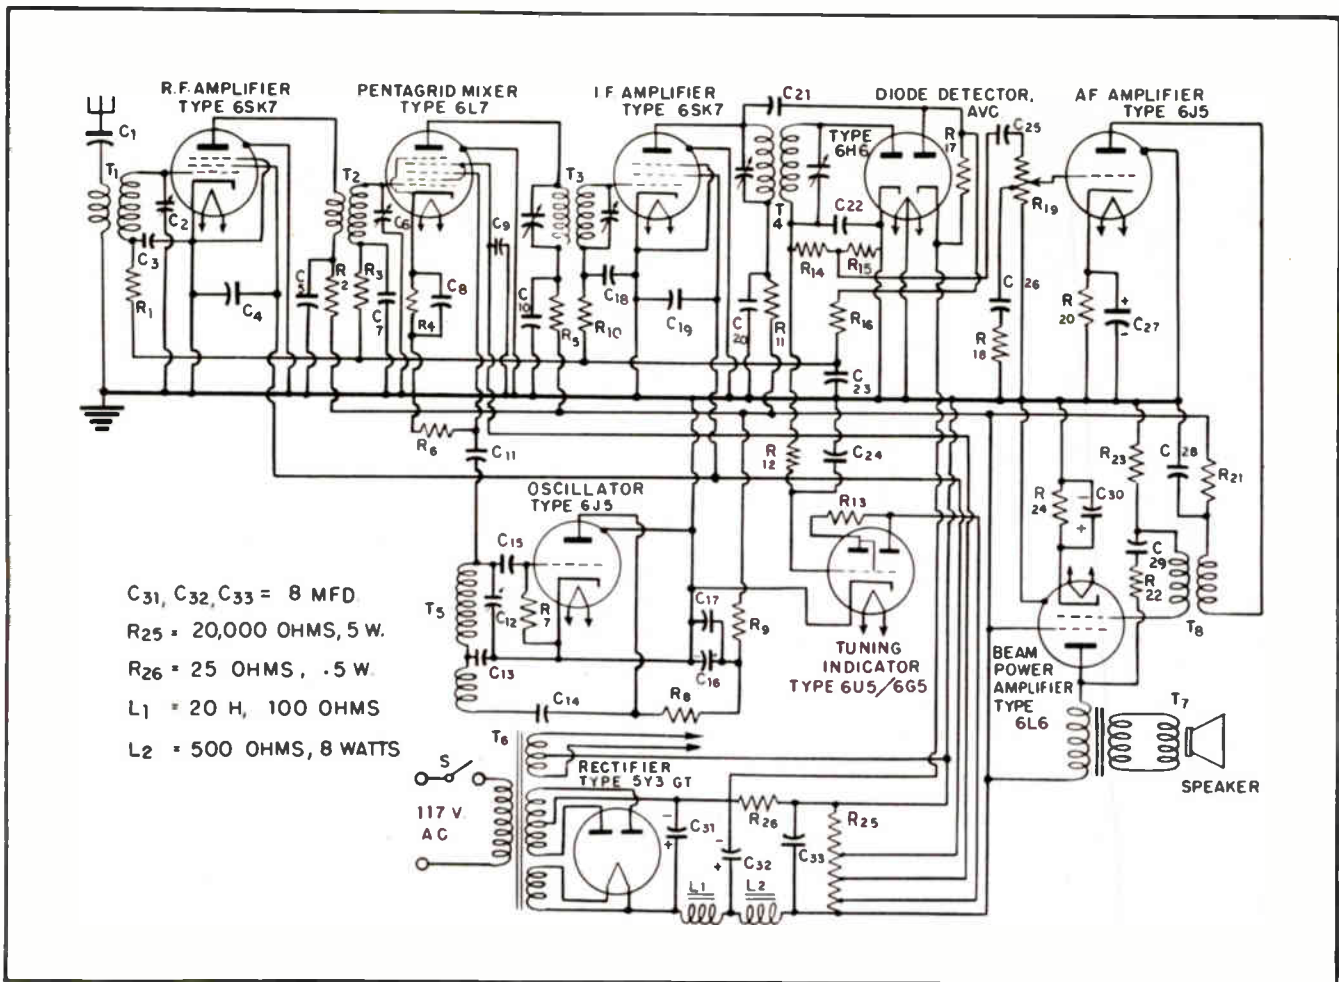 R.F. AMPLIFIER
TYPE 6SK7
PENTAGRID MIXER
TYPE 6L7
I F AMPLIFIER
TYPE 6SK7
C21
DIODE DETECTOR,
AVC
AF AMPLIFIER
TYPE 6J5
C1
T1
C2
C3
R1
C4
T2
C5
R2
R3
C6
C7
R4
C8
C9
T3
C10
R5
R10
C18
C19
T4
C20
R11
TYPE
6H6
C22
R14
R15
R16
R17
C23
C25
R19
C26
R18
R20
+
C27
-
R6
C11
R12
C24
R23
C28
R21
OSCILLATOR
TYPE 6J5
R13
R24
-
C30
+
C29
R22
C15
T5
C12
R7
C13
C14
C17
C16
R9
R8
TUNING
INDICATOR
TYPE 6U5/6G5
BEAM
POWER
AMPLIFIER
TYPE
6L6
T8
T7
SPEAKER
C31, C32, C33 = 8 MFD.
R25 = 20,000 OHMS, 5 W.
R26 = 25 OHMS, .5 W.
L1 = 20 H, 100 OHMS
L2 = 500 OHMS, 8 WATTS
T6
S
117 V.
AC
RECTIFIER
TYPE 5Y3 GT
-
C31
+
-
C32
+
R26
C33
R25
L1
L2